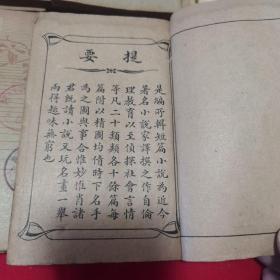 提要
是編所輯短篇小說為近今
著名小說家譯撰之作自倫
理教育以至偵探社會言情
等凡二十類類各十餘篇每
篇附以精圖均倩時下名手
為之圖與事合惟妙惟肖諸
君既讀小說又玩名畫一舉
而得趣味無窮也